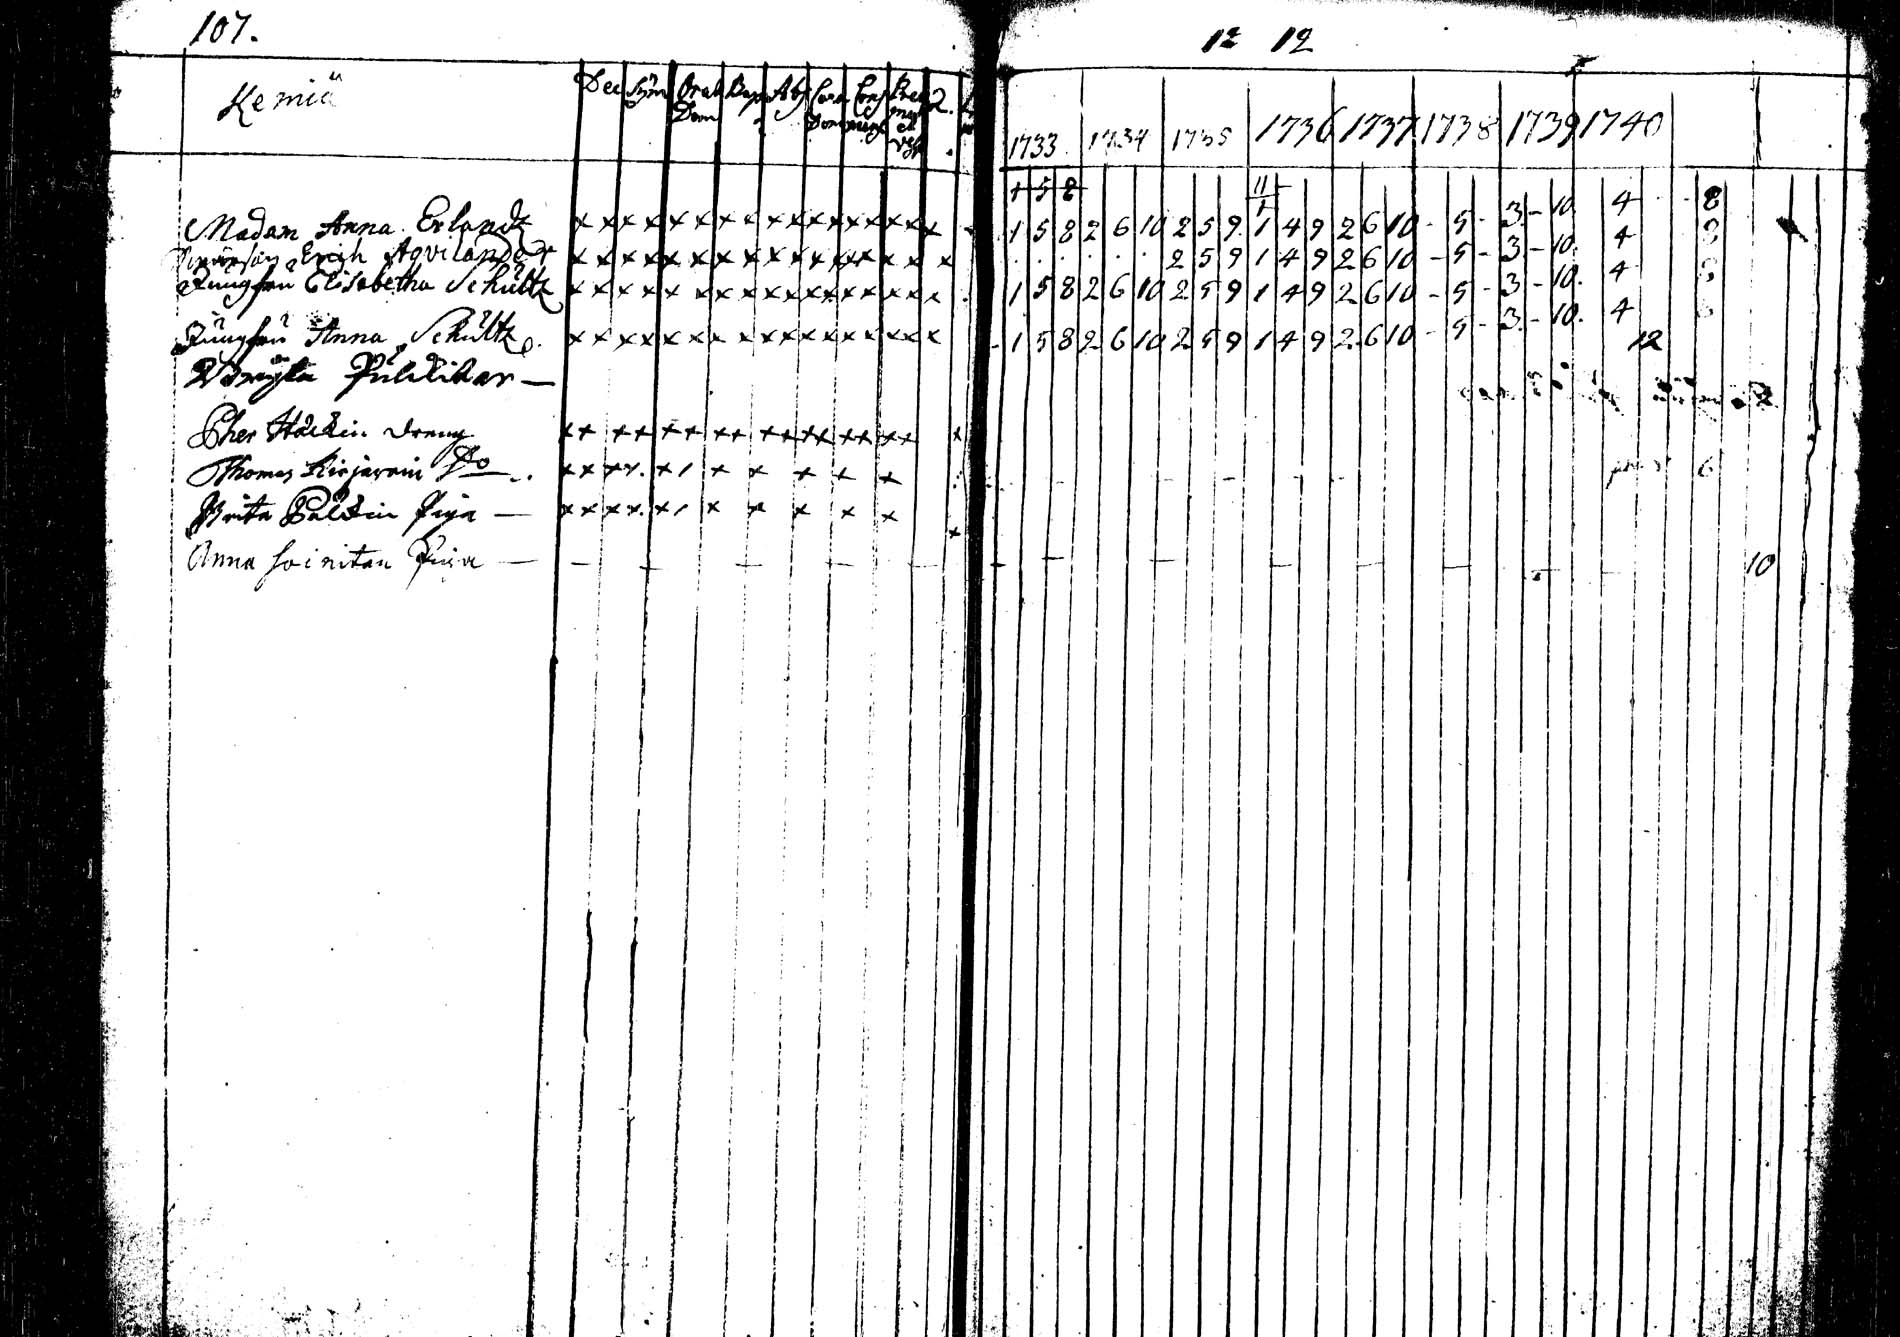 107.
12 12
Kemiä
Dec Sym Orat Dom Bap Abs Cœna Dom Conf 2.
1733 1734 1735 1736 1737 1738 1739 1740
1 5 8 11
Madam Anna Erlandz x x x x x x x x x x x x x x x x 1 5 8 2 6 10 2 5 9 1 4 9 2 6 10 - 5 - 3 - 10. 4 8
Erich Aqvilander x x x x x x x x x x x x x x x x 2 5 9 1 4 9 2 6 10 - 5 - 3 - 10. 4 8
Jungfru Elisabetha Schultz x x x x x x x x x x x x x x x x 1 5 8 2 6 10 2 5 9 1 4 9 2 6 10 - 5 - 3 - 10. 4 8
Jungfru Anna Schultz x x x x x x x x x x x x x x x x 1 5 8 2 6 10 2 5 9 1 4 9 2 6 10 - 5 - 3 - 10. 4
12
Pher Hackin dreng x x x x x x x x x x x x x x x x x
Thomas Kirjavain Do x x x x. x / x x x x x 6
Brita Pulkin Piga — x x x x. x / x x x x x x
Anna Soinitan Piga — 10